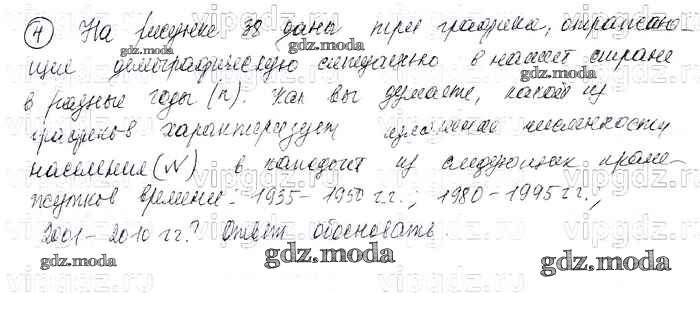 ④ На рисунке 38 даны три графика, отражаю-
щие демографическую ситуацию в нашей стране
в разные годы (n). Как вы думаете, какой из
графиков характеризует изменение численности
населения (N) в каждый из следующих проме-
жутков времени: 1935-1950 г.г.; 1980-1995 г.г.;
2001-2010 гг.? Ответ обосновать.
gdz.moda
gdz.moda
gdz.moda
gdz.moda
gdz.moda
gdz.moda
vipgdz.moda